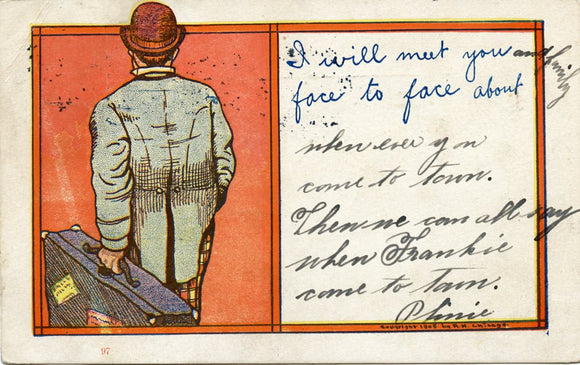 I will meet you and family
face to face about
when ever you
come to town.
Then we can all say
when Frankie
come to town.
Plinie
Copyright 1905 by R.H. Chicago.
97